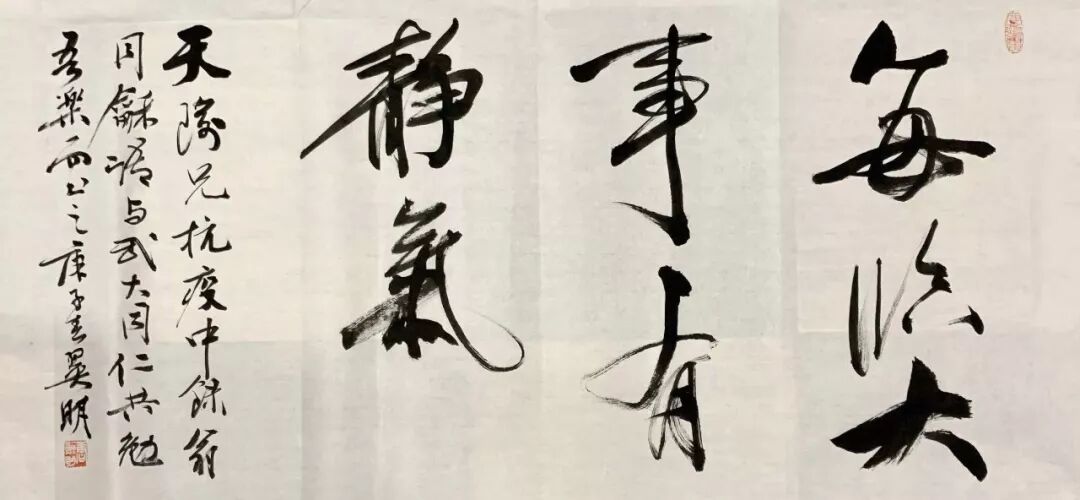 每临大
事有
靜氣
天兄抗疫中錄翁
同龢語与武大同仁共勉
吾樂而书之庚子春翼明